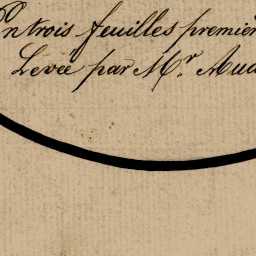 En trois feuilles premier
Levée par Mr. Aud